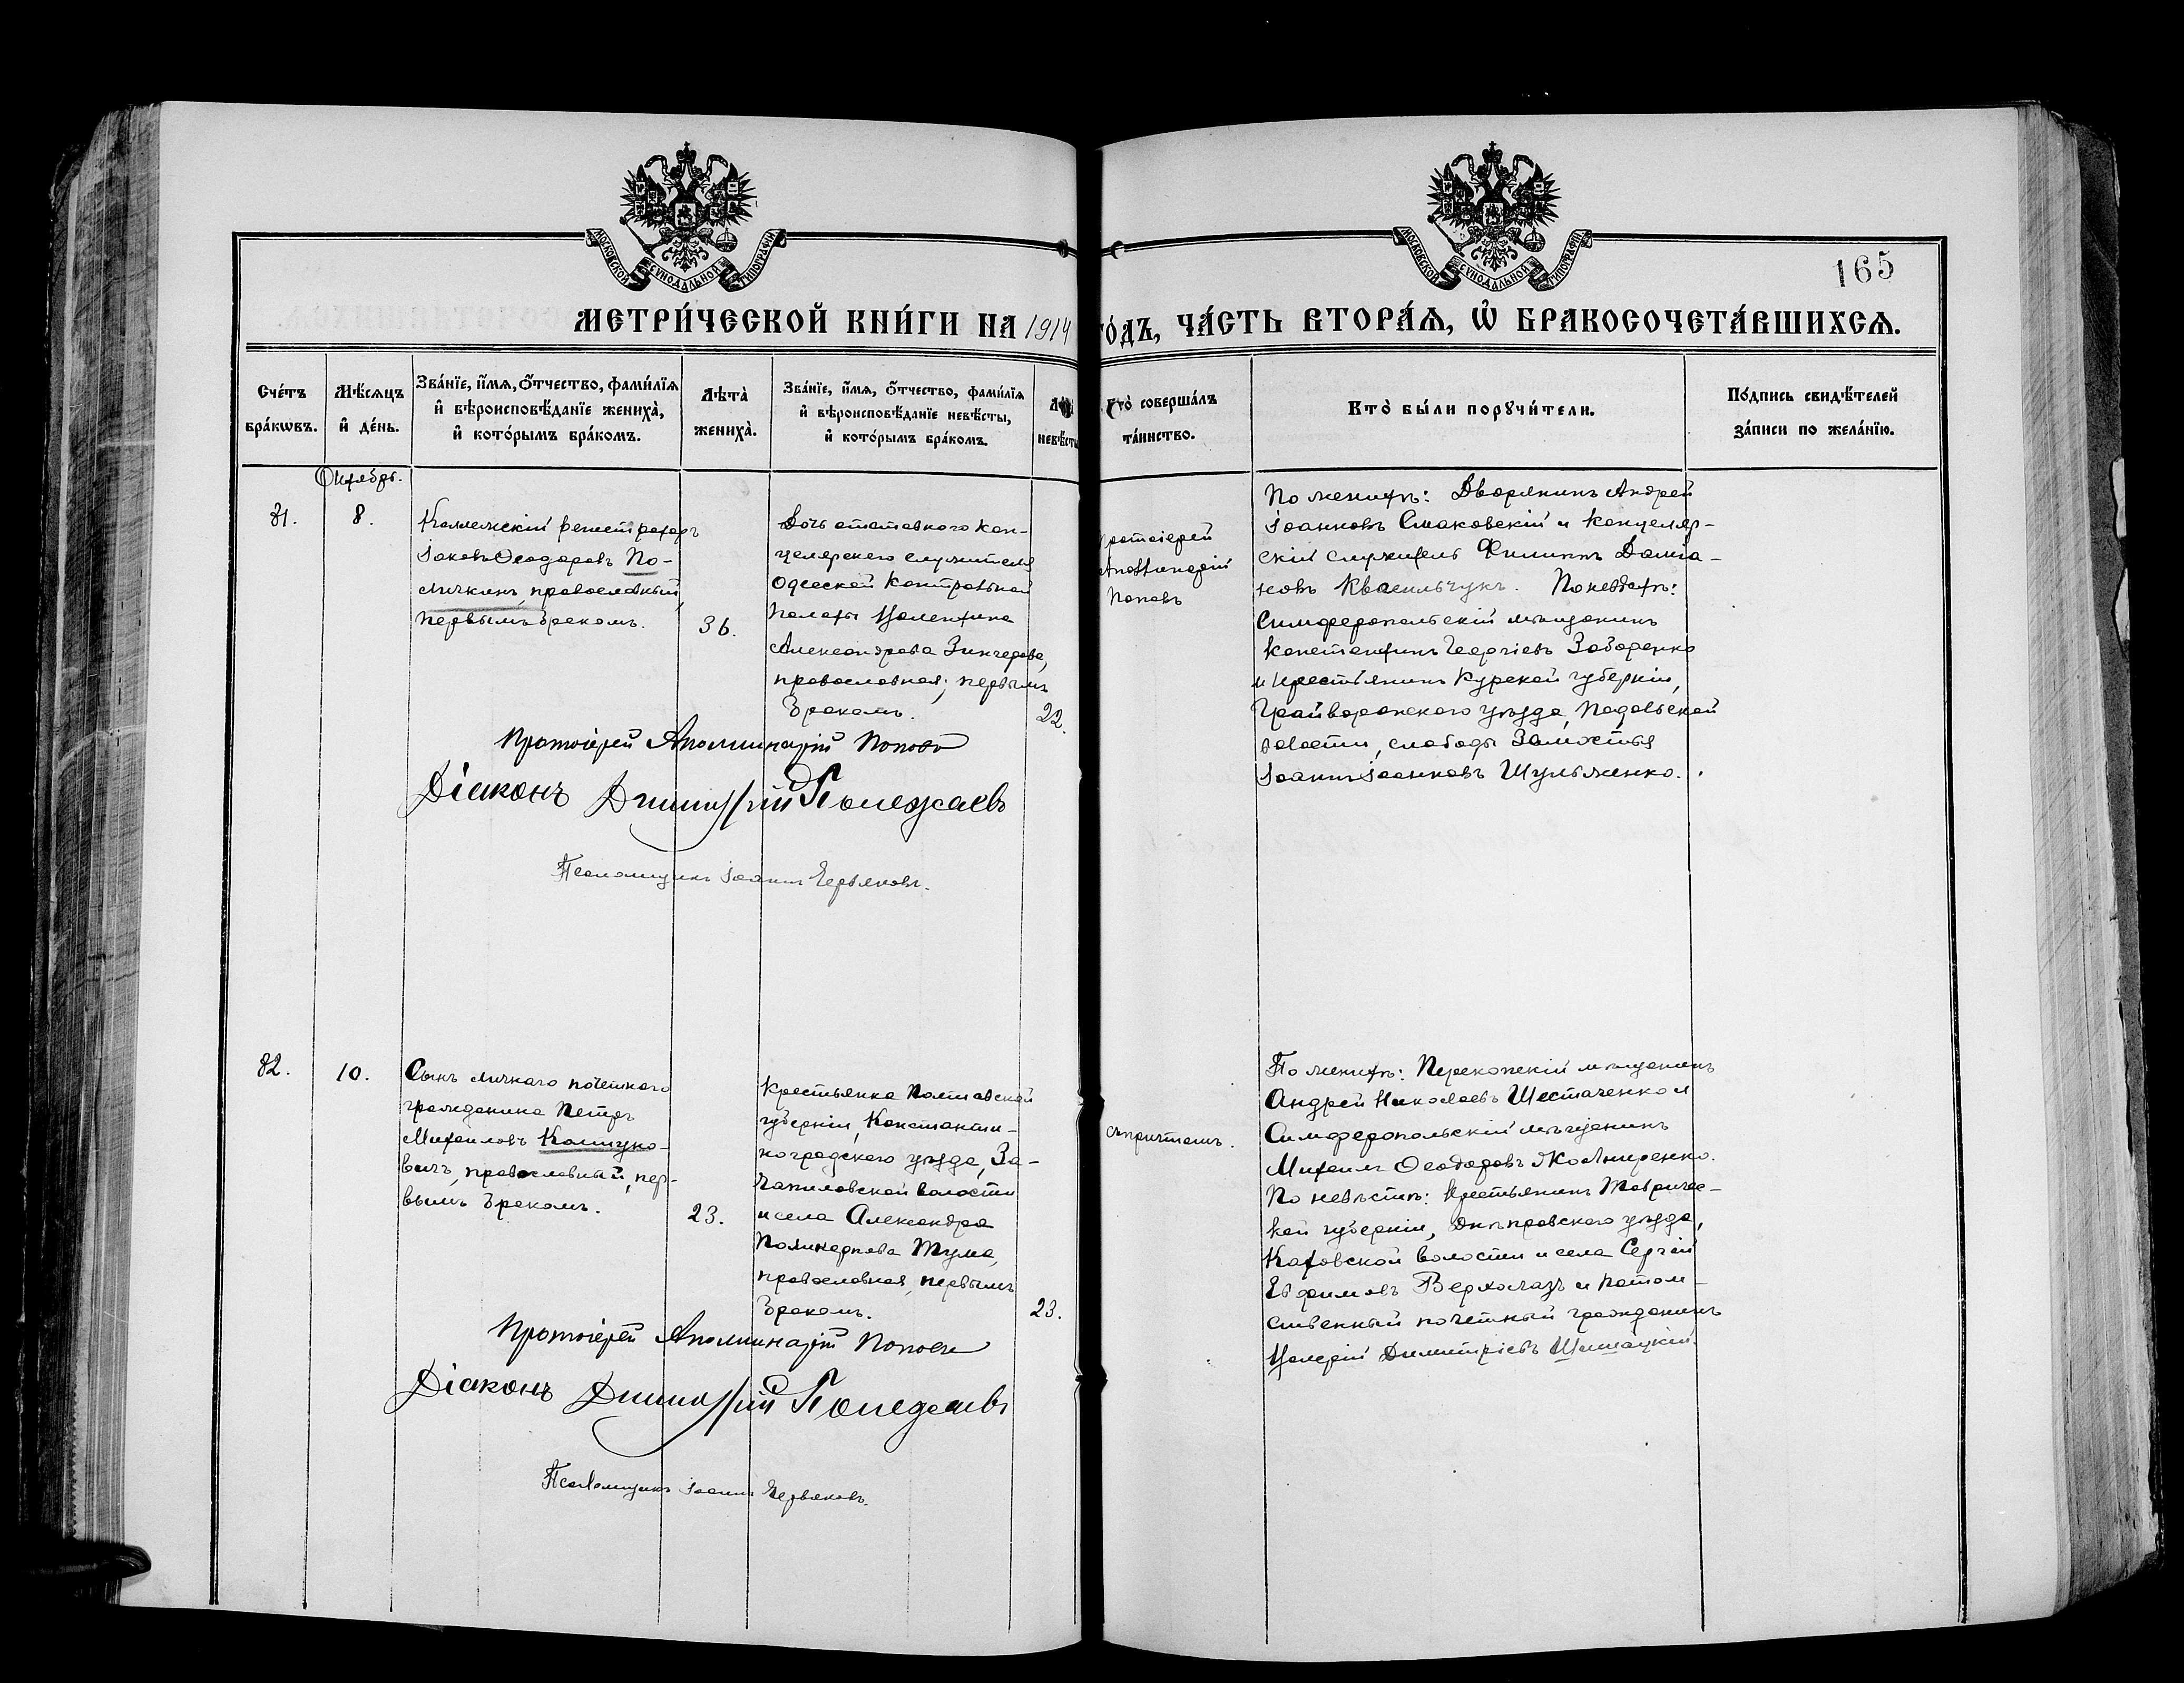 МОСКОВСКОЙ СѴНОДАЛЬНОЙ ТИПОГРАФІИ
МОСКОВСКОЙ СѴНОДАЛЬНОЙ ТИПОГРАФІИ
165
МЕТРИ́ЧЕСКОЙ КНИ́ГИ НА 1914 ГО́ДЪ, ЧА́СТЬ ВТОРА́Ѧ, Ѡ҆ БРАКОСОЧЕТА́ВШИХСѦ.
Сче́тъ бра́кѡвъ.
Мѣ́сѧцъ и҆ де́нь.
Зва́нїе, и҆́мѧ, о҆́тчество, фами́лїѧ
и҆ вѣроисповѣ́данїе жениха̀,
и҆ кото́рымъ бра́комъ.
Лѣта̀ жениха̀.
Зва́нїе, и҆́мѧ, о҆́тчество, фами́лїѧ
и҆ вѣроисповѣ́данїе невѣ́сты,
и҆ кото́рымъ бра́комъ.
невѣ́сты
Кто̀ соверша́лъ
та́инство.
Кто̀ бы́ли порꙋчи́тели.
По́дпись свидѣ́телей
за́писи по жела́нїю.
Октябрь.
81.
8.
Коллежскій регистраторъ
Іаковъ Ѳеодоровъ По-
личкинъ, православный,
первымъ бракомъ.
36.
Дочь отставного кан-
целярскаго служителя
Одесской Контрольной
Палаты Валентина
Александрова
православная; первымъ
бракомъ.
22.
Протоіерей
Аполлинарій
Поповъ
По женихѣ: Дворянинъ Андрей
Іоанновъ Смаковскій и канцеляр-
скій служитель Филиппъ Даміа-
новъ Квасильчукъ. По невѣстѣ:
Симферопольскій мѣщанинъ
Константинъ Георгіевъ Забаренко
и крестьянинъ Курской губерніи,
Грайворонскаго уѣзда,
волости, слободы Замостья
Іоаннъ Іоанновъ Шульженко.
Протоіерей Аполлинарій Поповъ
Діаконъ Димитрій Полежаевъ
Псаломщикъ Іоаннъ Червяковъ.
82.
10.
Сынъ личнаго почетнаго
гражданина Петръ
Михаиловъ
вичъ, православный, пер-
вымъ бракомъ.
23.
Крестьянка Полтавской
губерніи, Константи-
ноградскаго уѣзда, За-
чапиловской волости
и села Александра
Поликарпова Тума,
православная, первымъ
бракомъ.
23.
съ причтомъ.
По женихѣ: Перекопскій мѣщанинъ
Андрей Николаевъ Шестаченко и
Симферопольскій мѣщанинъ
Михаилъ Ѳеодоровъ
По невѣстѣ: крестьянинъ Тавричес-
кой губерніи, Днѣпровскаго уѣзда,
Каховской волости и села Сергѣй
Евфимовъ Верхолазъ и потом-
ственный почетный гражданинъ
Валерій Димитріевъ
Протоіерей Аполлинарій Поповъ
Діаконъ Димитрій Полежаевъ
Псаломщикъ Іоаннъ Червяковъ.